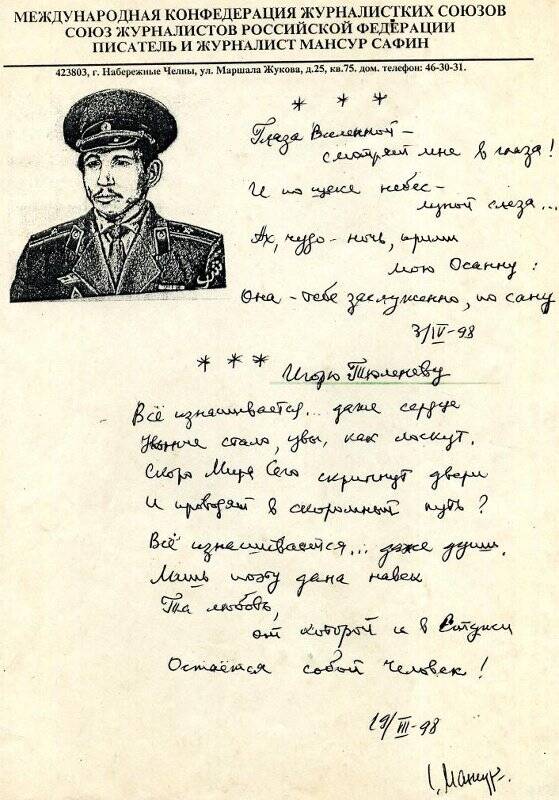 МЕЖДУНАРОДНАЯ КОНФЕДЕРАЦИЯ ЖУРНАЛИСТКИХ СОЮЗОВ
СОЮЗ ЖУРНАЛИСТОВ РОССИЙСКОЙ ФЕДЕРАЦИИ
ПИСАТЕЛЬ И ЖУРНАЛИСТ МАНСУР САФИН
423803, г. Набережные Челны, ул. Маршала Жукова, д.25, кв.75. дом. телефон: 46-30-31.
* * *
Глаза Вселенной –
смотрят мне в глаза!
И по щеке небес –
луной слеза...
Ах, чудо-ночь, прими
мою Осанну:
Она – тебе заслуженно, по сану
3/IV-98
* * *
Игорю Тюленеву
Всё изнашивается... даже сердце
стало, увы, как лоскут.
Скоро Мира Сего скрипнут двери
И проводят в скоромный путь?
Всё изнашивается... даже души.
Лишь поэту дана навек
Та любовь,
от которой и в Стужи
Остаётся собой человек!
29/III-98
Мансур